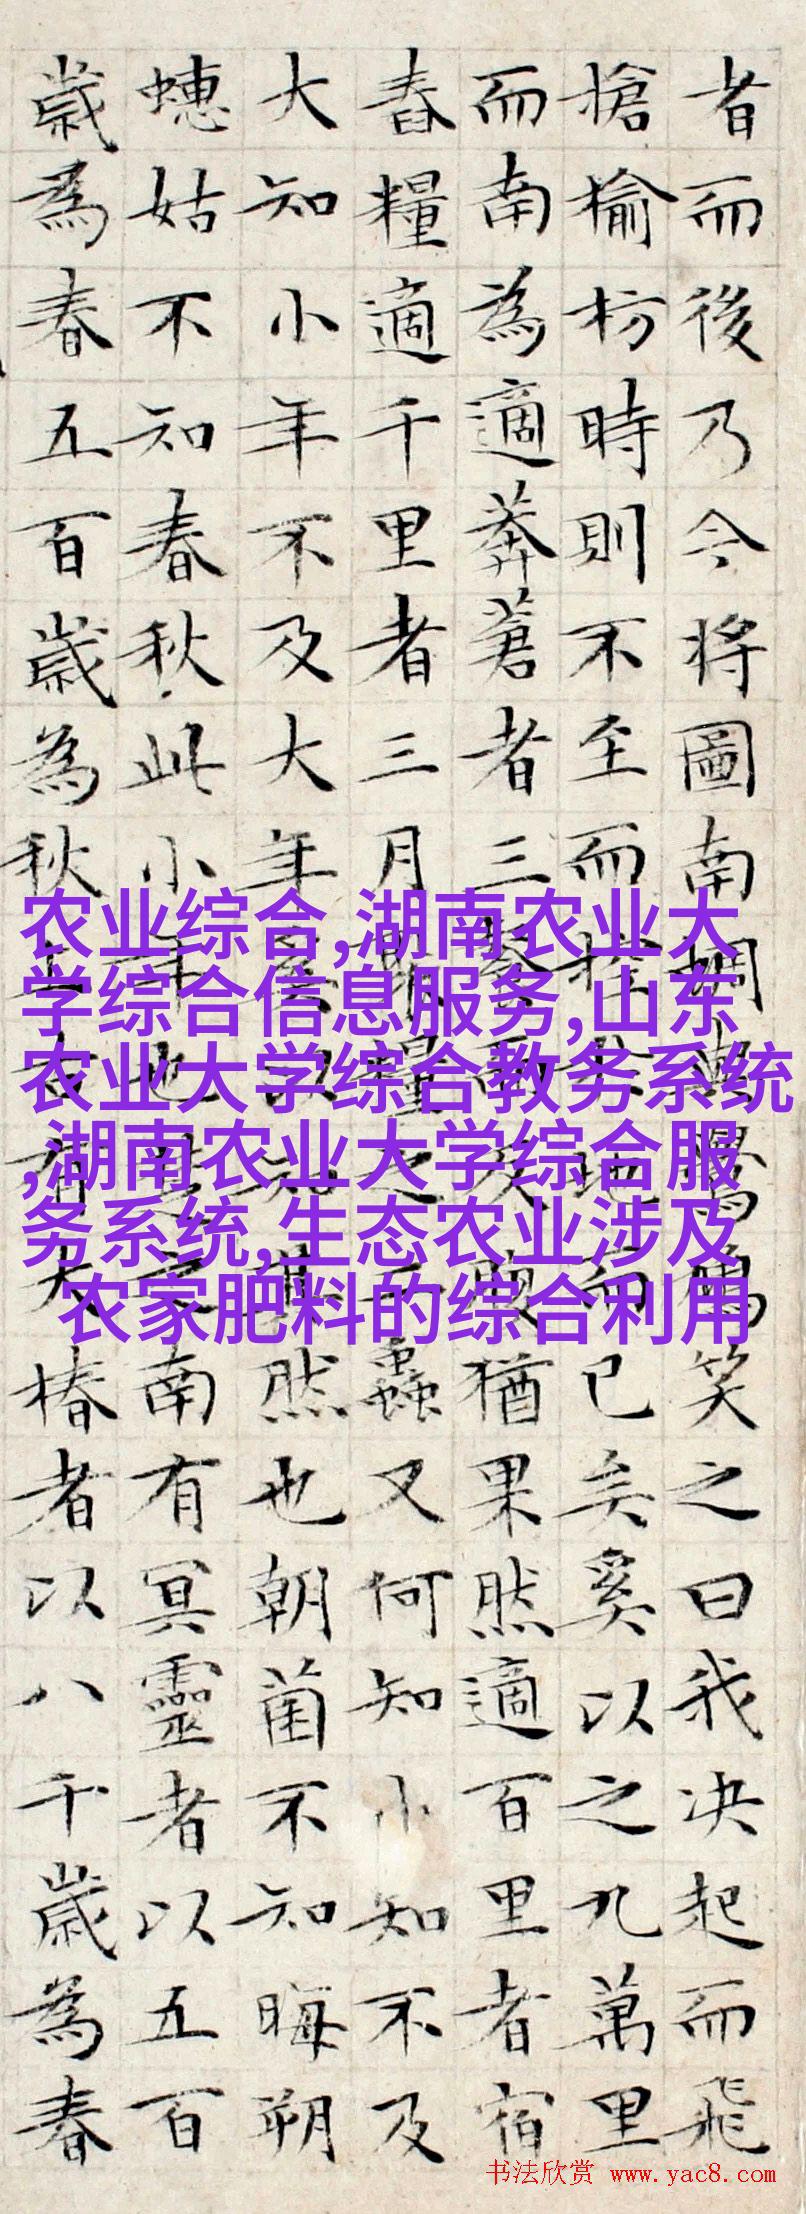 者而後乃今将圖南蜩與鳩笑之曰我决起而飛
搶榆枋時則不至而控地而已矣奚以之九萬里
而南為適莽蒼者三而腹猶果然適百里者宿
舂糧適千里者三月聚糧之二蟲又何知小知不及
大知小年不及大年奚以知其然也朝菌不知晦朔
蟪姑不知春秋此小年也楚之南有冥靈者以五百
歲為春五百歲為秋上古有大椿者以八千歲為春
农业综合,湖南农业大
学综合信息服务,山东
农业大学综合教务系统
,湖南农业大学综合服
务系统,生态农业涉及
农家肥料的综合利用
书法欣赏 www.yac8.com